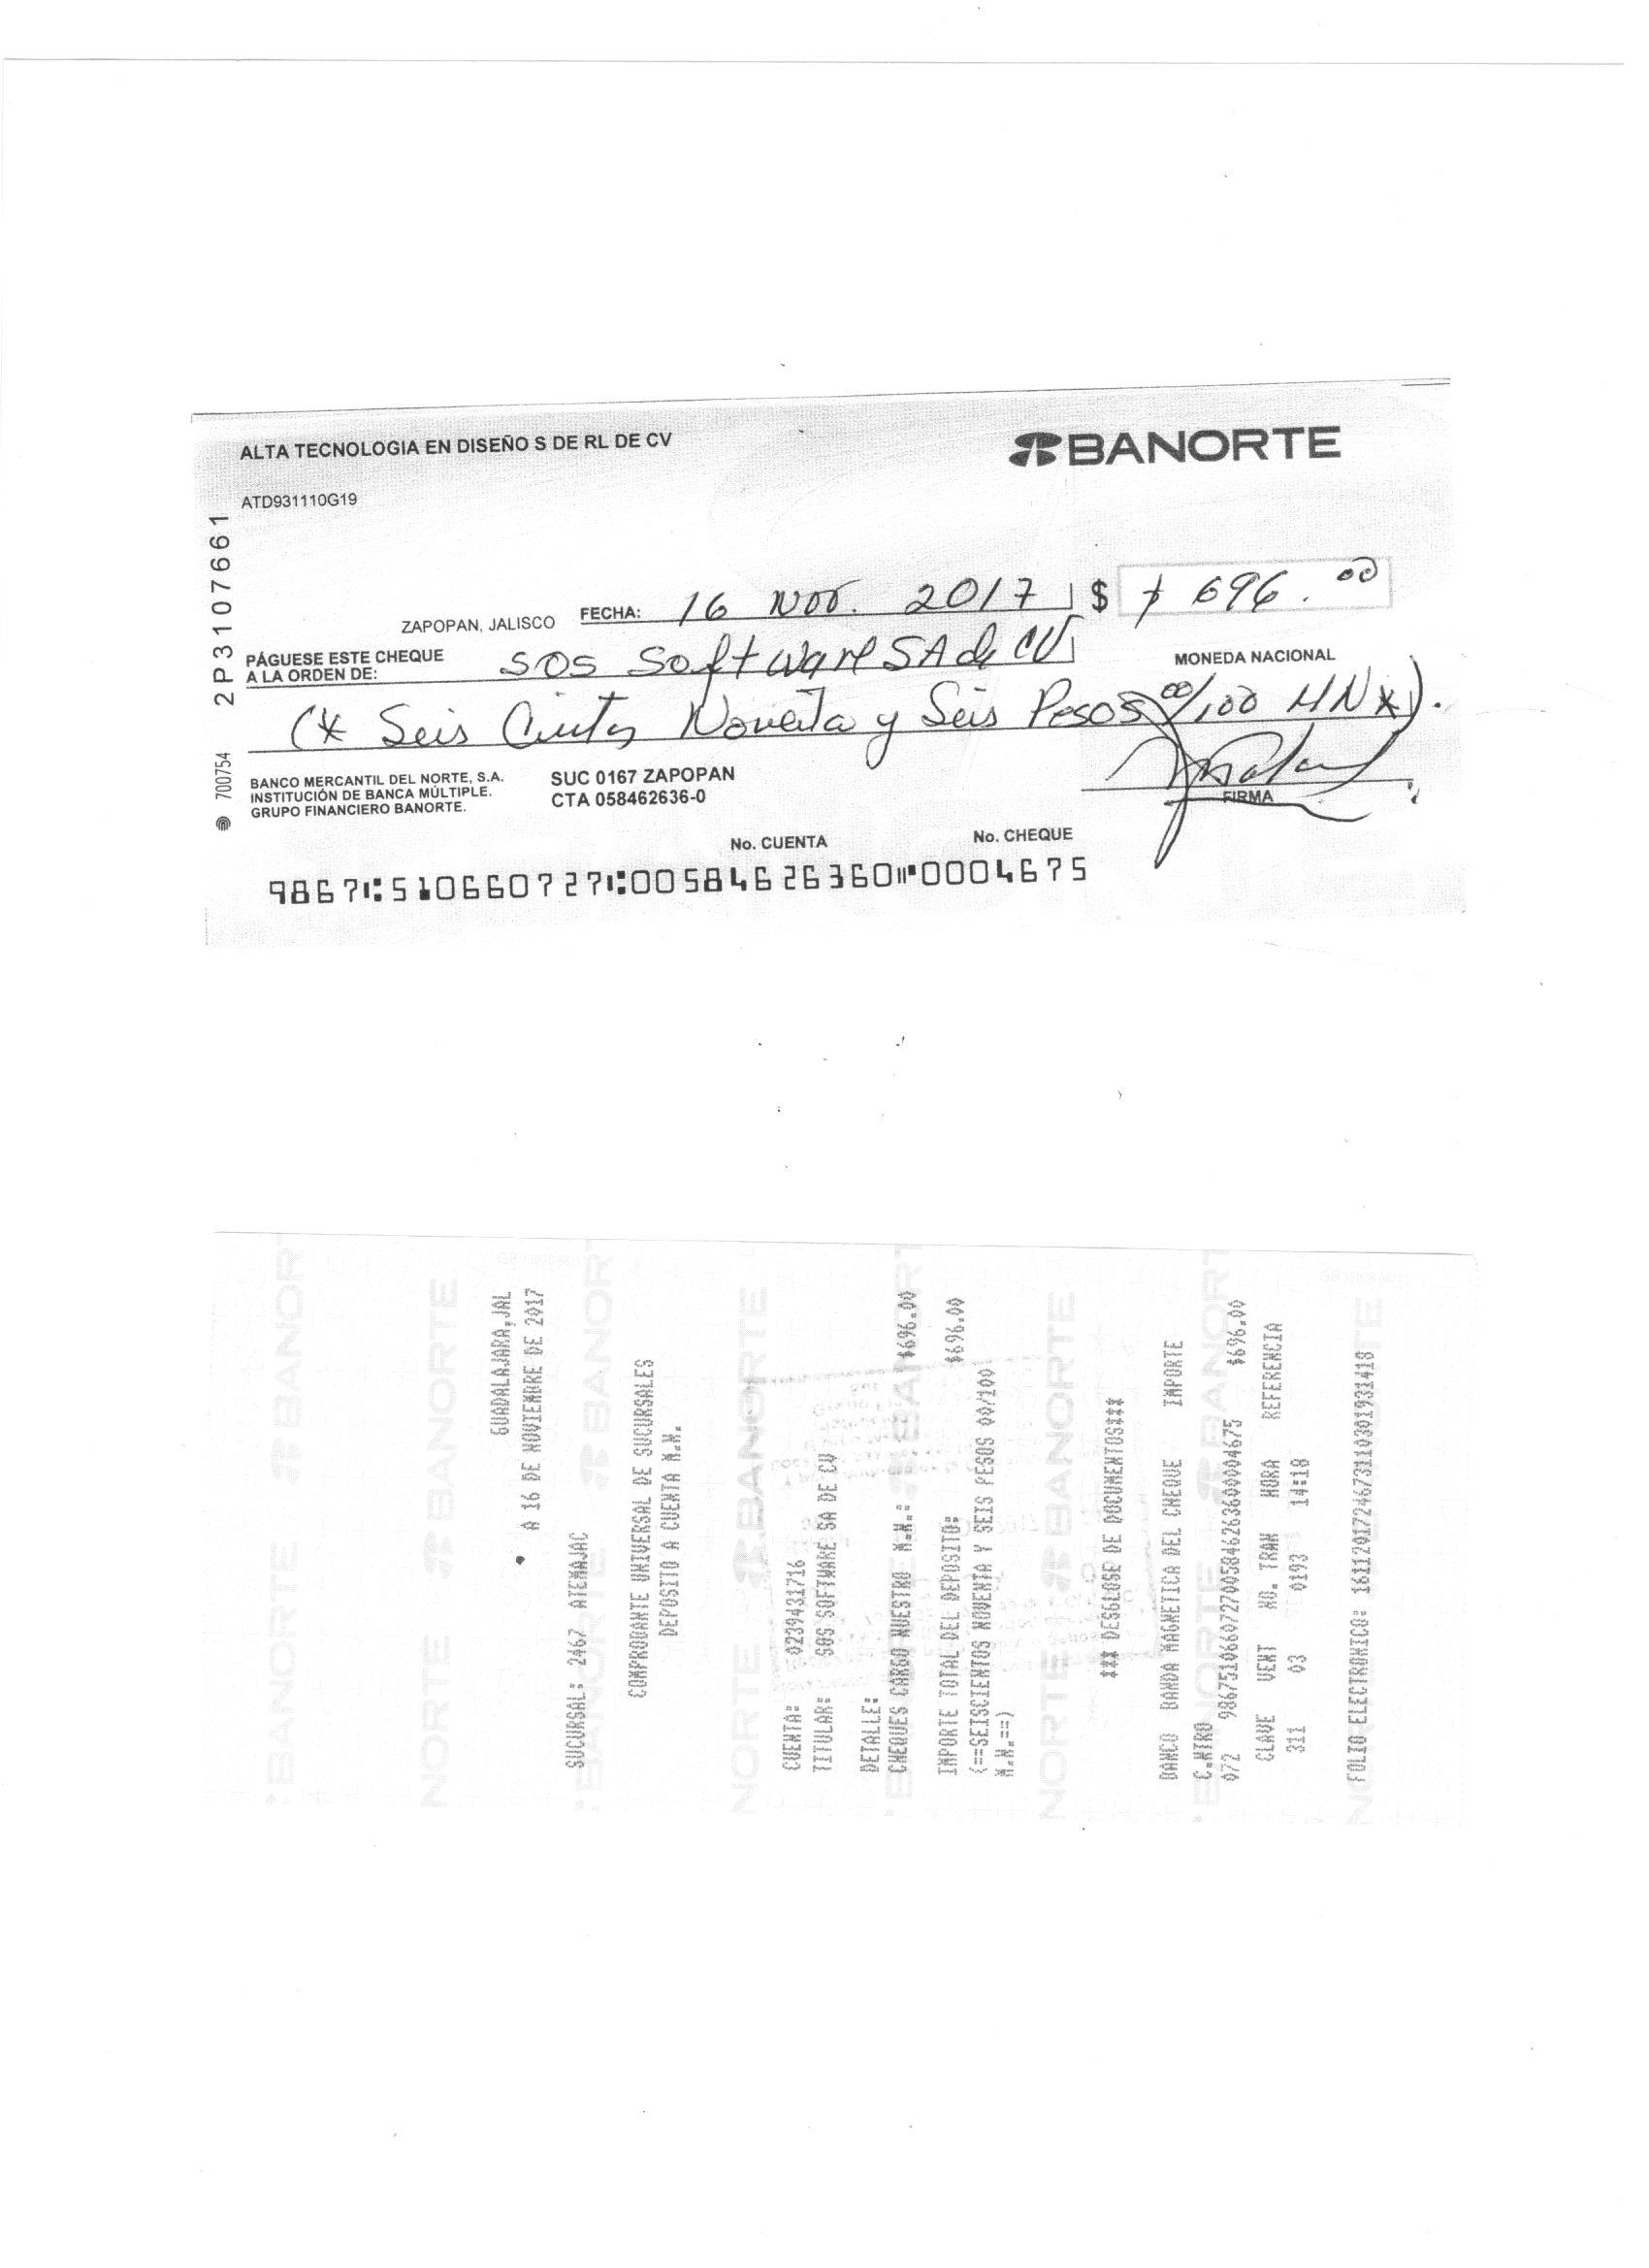 ALTA TECNOLOGIA EN DISEÑO S DE RL DE CV
BANORTE
ATD931110G19
2P3107661
700754
ZAPOPAN, JALISCO FECHA: 16 Nov. 2017 $ 696.00
PÁGUESE ESTE CHEQUE
A LA ORDEN DE: SOS Software SA de CV
MONEDA NACIONAL
(* Seis Cientos Noventa y Seis Pesos 00/100 MN *).
BANCO MERCANTIL DEL NORTE, S.A.
INSTITUCIÓN DE BANCA MÚLTIPLE.
GRUPO FINANCIERO BANORTE.
SUC 0167 ZAPOPAN
CTA 058462636-0
FIRMA
No. CUENTA No. CHEQUE
9867⑆510660727⑆00584626360⑈0004675
GUADALAJARA,JAL
A 16 DE NOVIEMBRE DE 2017
SUCURSAL: 2467 ATEMAJAC
COMPROBANTE UNIVERSAL DE SUCURSALES
DEPOSITO A CUENTA M.N.
CUENTA: 0239431716
TITULAR: SOS SOFTWARE SA DE CV
DETALLE:
CHEQUES CARGO NUESTRO M.N.: $696.00
IMPORTE TOTAL DEL DEPOSITO: $696.00
(==SEISCIENTOS NOVENTA Y SEIS PESOS 00/100
M.N.==)
*** DESGLOSE DE DOCUMENTOS***
BANCO BANDA MAGNETICA DEL CHEQUE IMPORTE
C.NTRO
072 9867510660727005846263600004675 $696.00
CLAVE VENT NO. TRAN HORA REFERENCIA
311 03 0193 14:18
FOLIO ELECTRONICO: 161120172467311030193​1418
BANORTE